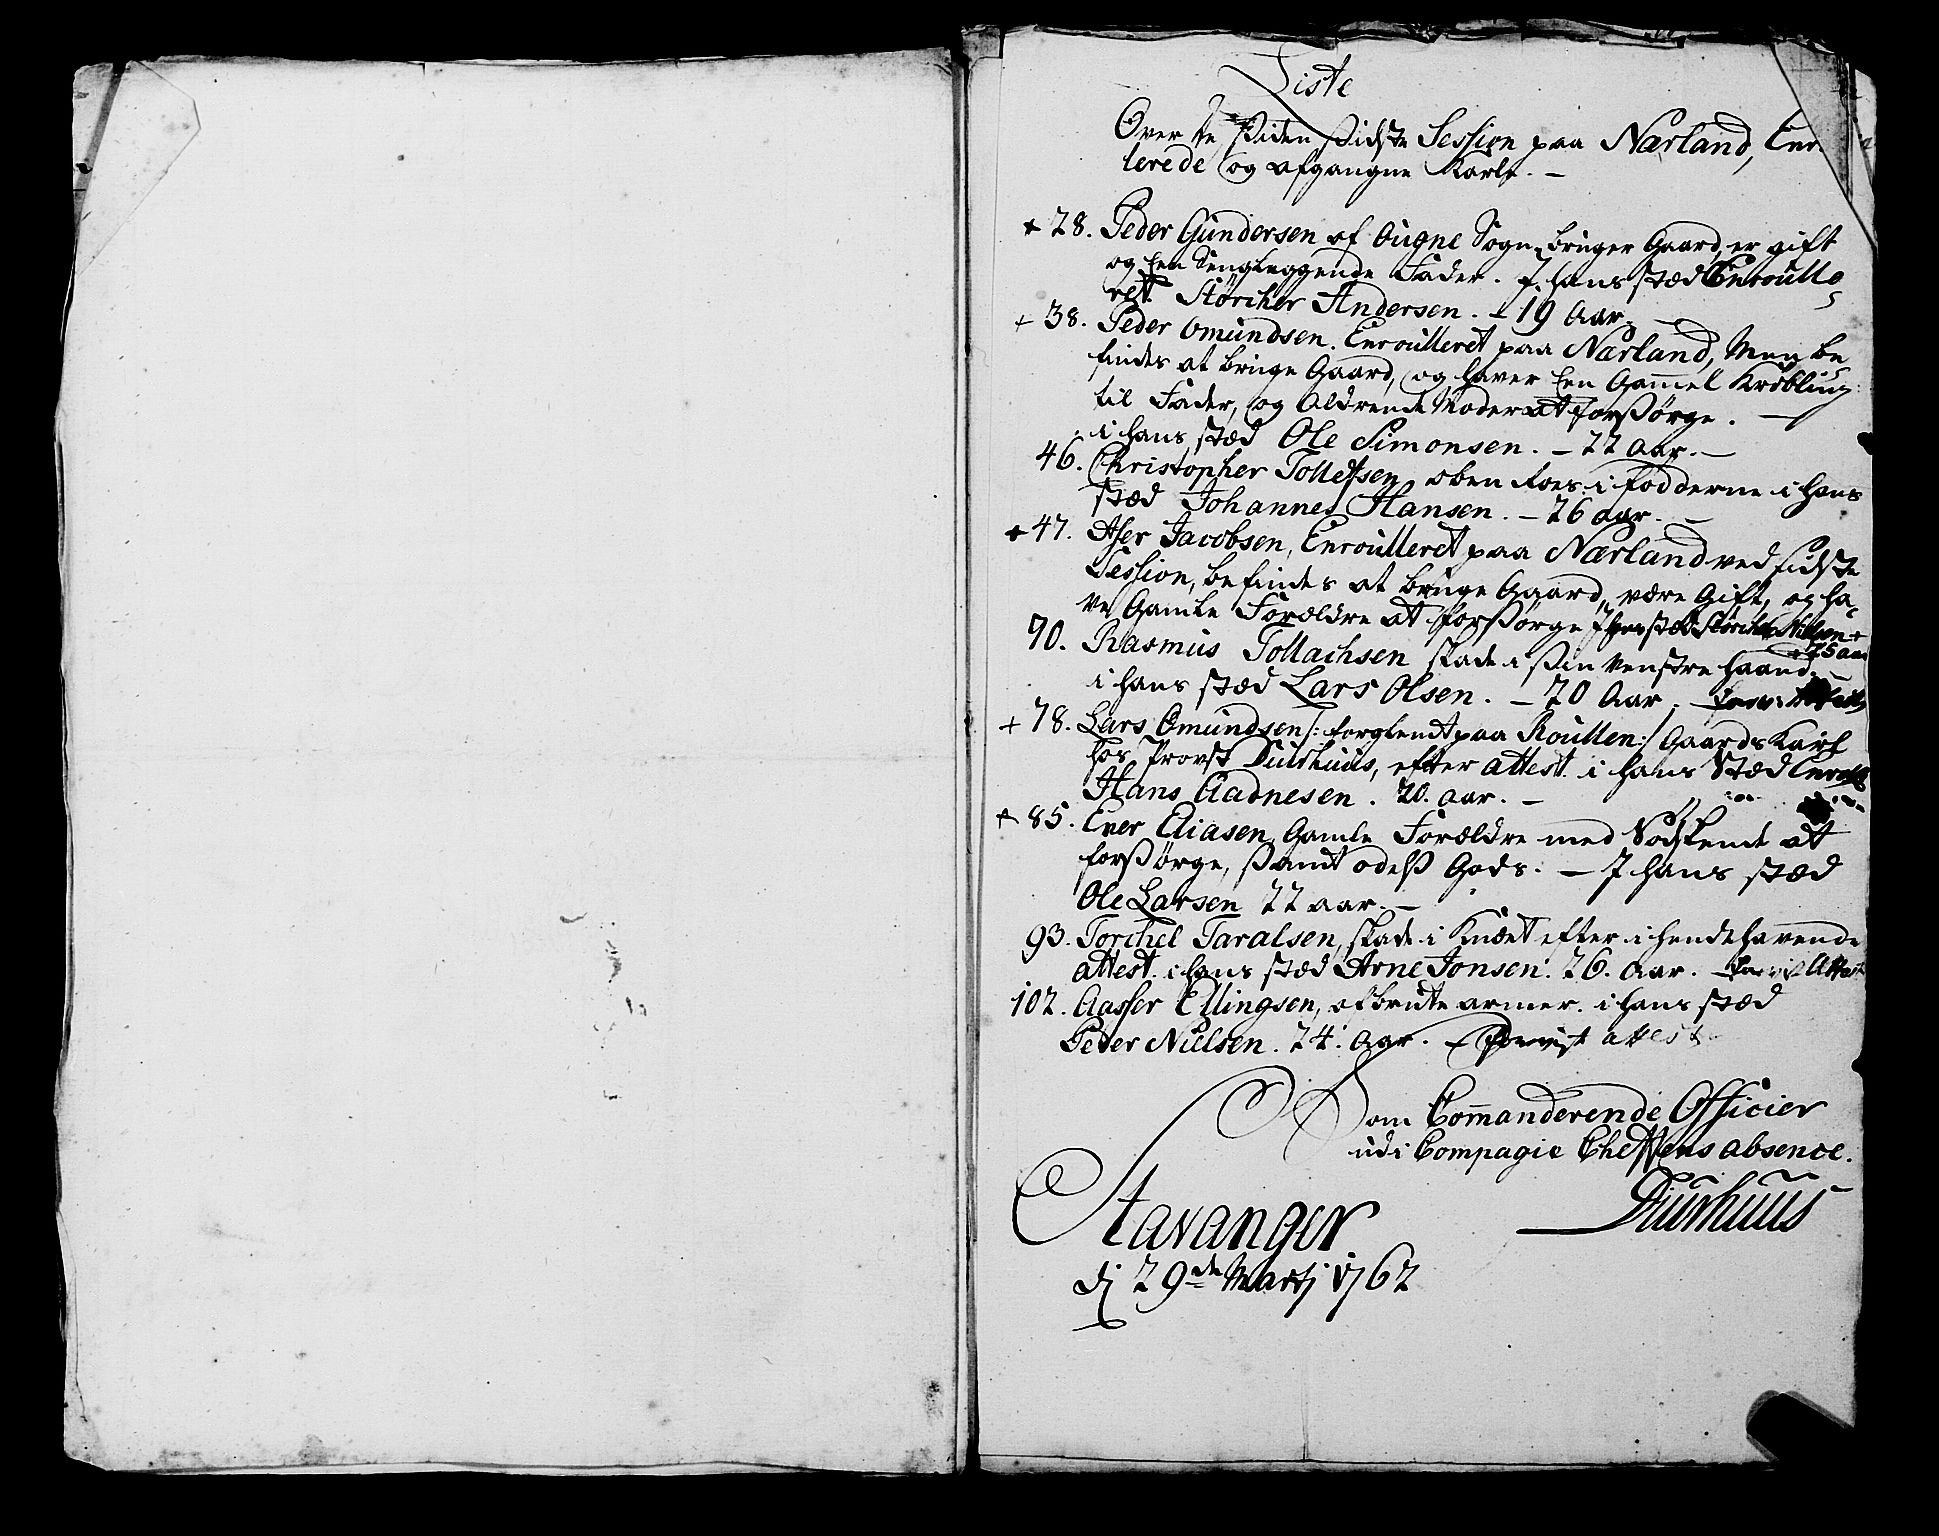 Liste
Over de siden sidste Session paa Nærland, Enr.
lerede og afgangne Karle. –
+ 28. Peder Gundersen af Ougne Sogn, bruger Gaard, er gift
og Een Sengleggende Fader. J hans stæd Enroulle
ret Storcher Andersen. – 19 Aar. –
+ 38. Peder Omundsen. Enroulleret paa Nærland, Men be
findes at bruge Gaard, og haver Een Gammel Krøbling
til Fader, og Aldrende Moder at forsørge. –
i hans stæd Ole Simonsen. – 22 Aar. –
46. Christopher Tollefsen, aben Roes i fødderne i hans
stæd Johannes Hansen. – 26 aar. –
+ 47. Aser Jacobsen, Enroulleret paa Nærland ved sidste
Session, befindes at bruge Gaard, være Gift, og ha
ve Gamle Forældre at forsørge J hans stæd Storcher Nilsen +
25 aar
70. Rasmus Tollachsen skade i sin venstre haand. –
i hans stæd Lars Olsen. – 20 Aar.
+ 78. Lars Omundsen /: forglemt paa Roullen :/ Gaards Karl
hos Provst Duurhuus, efter attest. i hans Stæd
Hans Aadnesen. 20. aar. –
+ 85. Ever Eliasen, Gamle Forældre med Sødskende at
forsørge, samt odels Gods. – J hans stæd
Ole Larsen 22 aar. –
93. Torchel Taralsen, skade i Knæet efter i hendehavende
attest. i hans stæd Arne Jonsen. 26. Aar. – Attest
102. Aasser Ellingsen, afbrute armer. i hans stæd
Peder Nielsen. 24. Aar. – attest
Som Commanderende Officier
udi Compagie Cheffens absence.
Stavanger Duurhuus
dj 29de Martj 1762